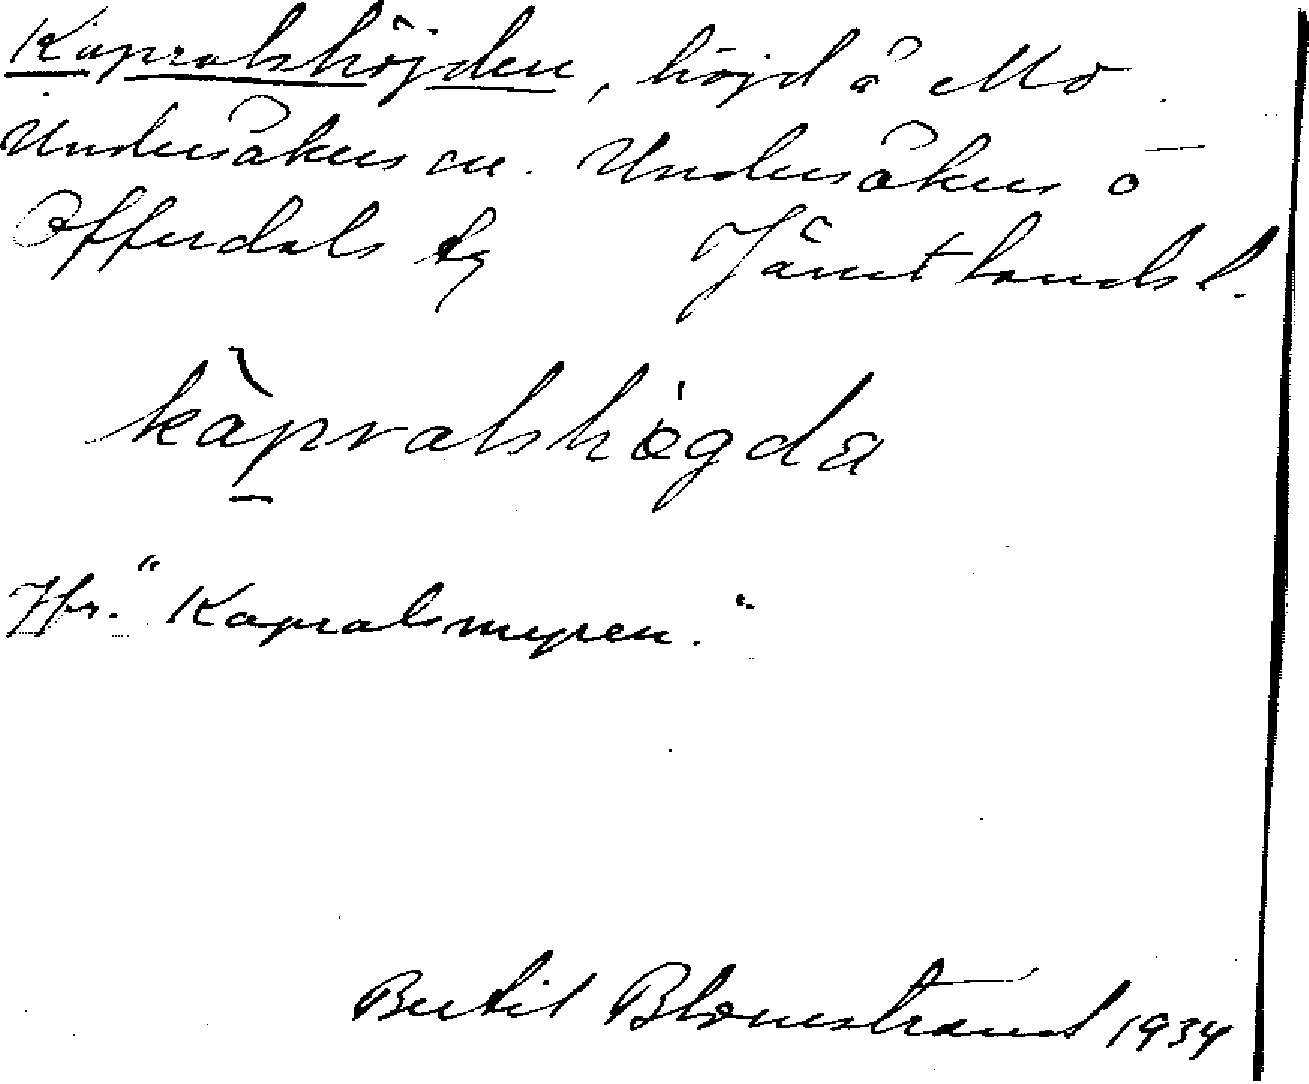 Kapralshöjden, höjd å Mo
Undersåkers sn. Undersåkers o
Offerdals tg Jämtlands l.
kàpralshögda
Jfr. "Kapralsmyren."
Bertil Blomstrand 1934